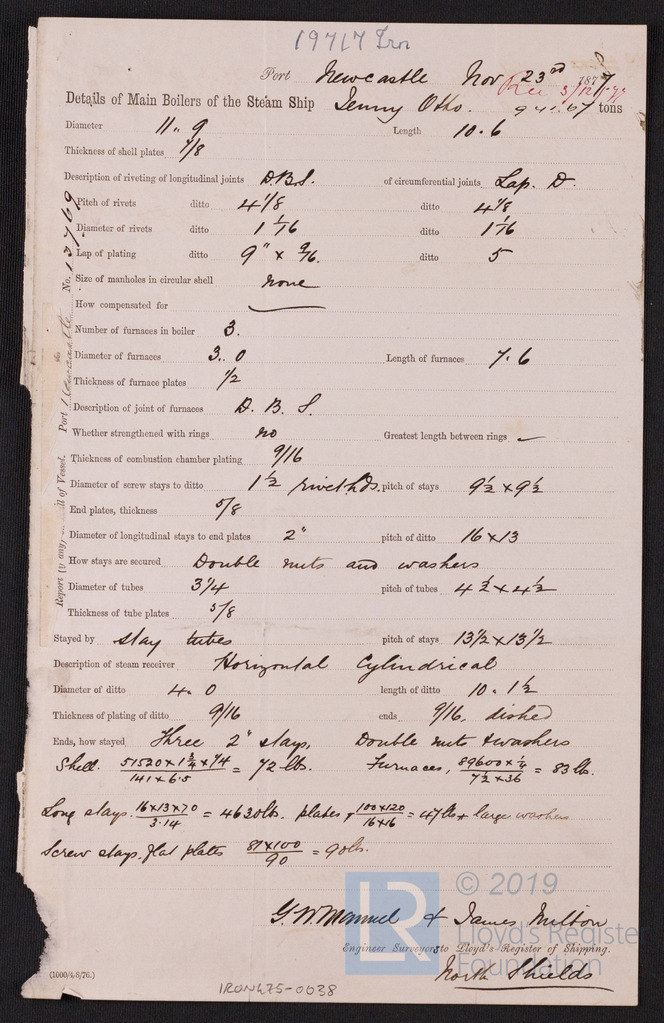 19717 Iron
Port Newcastle Nov 23rd 1877
Rec 3/12/77
Details of Main Boilers of the Steam Ship Jenny Otto. 941.67 tons
Diameter 11 " 9 Length 10.6
Thickness of shell plates 7/8
Description of riveting of longitudinal joints D.B.S. of circumferential joints Lap. D.
Pitch of rivets ditto 4 1/8 ditto 4 1/8
Diameter of rivets ditto 1 1/16 ditto 1 1/16
Lap of plating ditto 9" x 9/16. ditto 5
Size of manholes in circular shell none
How compensated for
Number of furnaces in boiler 3.
Diameter of furnaces 3.. 0 Length of furnaces 7.6
Thickness of furnace plates 1/2
Description of joint of furnaces D. B. S.
Whether strengthened with rings no Greatest length between rings -
Thickness of combustion chamber plating 9/16
Diameter of screw stays to ditto 1 1/2 rivet hds. pitch of stays 9 1/2 x 9 1/2
End plates, thickness 5/8
Diameter of longitudinal stays to end plates 2" pitch of ditto 16 x 13
How stays are secured Double nuts and washers
Diameter of tubes 3 1/4 pitch of tubes 4 1/2 x 4 1/2
Thickness of tube plates 5/8
Stayed by stay tubes pitch of stays 13 1/2 x 13 1/2
Description of steam receiver Horizontal Cylindrical
Diameter of ditto 4.0 length of ditto 10. 1 1/2
Thickness of plating of ditto 9/16 ends 9/16, dished
Ends, how stayed Three 2" stays, Double nuts & washers
Shell. 51520 x 1 3/4 x 7/4 / 141 x 6.5 = 72 lbs. Furnaces, 89600 x 1/4 / 7 1/2 x 36 = 83 lb.
Long stays. 16 x 13 x 70 / 3.14 = 4630 lb. plates 100 x 120 / 16 x 16 = 47 lb + large washers
Screw stays. flat plates 81 x 100 / 90 = 90 lb.
G. W. Manuel & James Milton
Engineer Surveyors to Lloyd's Register of Shipping.
North Shields
(1000/4/8/76.)
IRON475-0038
Report (if any) ill of Vessel. Port Newcastle No. 13709
LR
© 2019
Lloyd's Register
Foundation